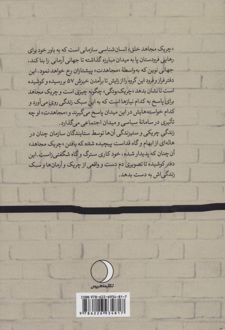 «چریک مجاهد خلق» انسان‌شناسی سازمانی است که به باور خود برای
رهایی فرودستان پا به میدان مبارزه گذاشته تا جهانی آرمانی را بنا کند.
جهانی نوین که به‌واسطهٔ «مجاهدت» پیشتازان رخ خواهد نمود. این
دفتر فراز و فرود این گروه را از زایش تا برآمدن خیزش ۵۷ بررسیده و کوشیده
است تا نشان بدهد «چریک‌بودگی» چگونه چیزی است و چریک مجاهد
برای پاسخ به کدام نیازها است که به این سبک زندگی روی می‌آورد و
کدام خواسته‌هایش در این میدان پاسخ می‌گیرند و «مجاهدت» او چه
تأثیری در سامانهٔ سیاسی و میدان اجتماعی می‌گذارد.
زندگی چریکی و ستیزندگی آن‌ها توسط ستایندگان سازمان چنان در
هاله‌ای از ابهام و گاه قداست پیچیده شده که یافتن «چریک مجاهد»
آن چنان که پدیدار شده، خود کاری سترگ و گاه شگفتی‌زاست. این
دفتر کوشیده تا تصویری دم دست و واقعی از چریک و آرمان‌ها و سبک
زندگی‌اش به دست بدهد.
ISBN: 978-622-6954-81-7
9 786226 954817